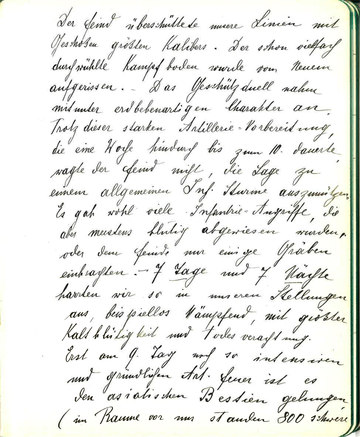 Der Feind überschüttete unsere Linien mit
Geschossen größten Kalibers. Der schon vielfach
durchwühlte Kampfboden wurde vom Neuem
aufgerissen. - Das Geschützduell nahm
mitunter erdbebenartigen Charakter an.
Trotz dieser starken Artillerie-Vorbereitung,
die eine Woche hindurch bis zum 10. dauerte
wagte der Feind nicht, die Lage zu
einem allgemeinen Inf. Sturme auszunützen.
Es gab wohl viele Infanterie-Angriffe, die
aber meistens blutig abgewiesen wurden,
oder dem Feinde nur einige Gräben
einbrachten. - 7 Tage und 7 Nächte
harrten wir so in unseren Stellungen
aus, beispiellos kämpfend mit größter
Kaltblütigkeit und Todesverachtung.
Erst am 9. Tag nach so intensiven
und gründlichen Art. feuer ist es
den asiatischen Bestien gelungen
(im Raume vor uns standen 800 schwere